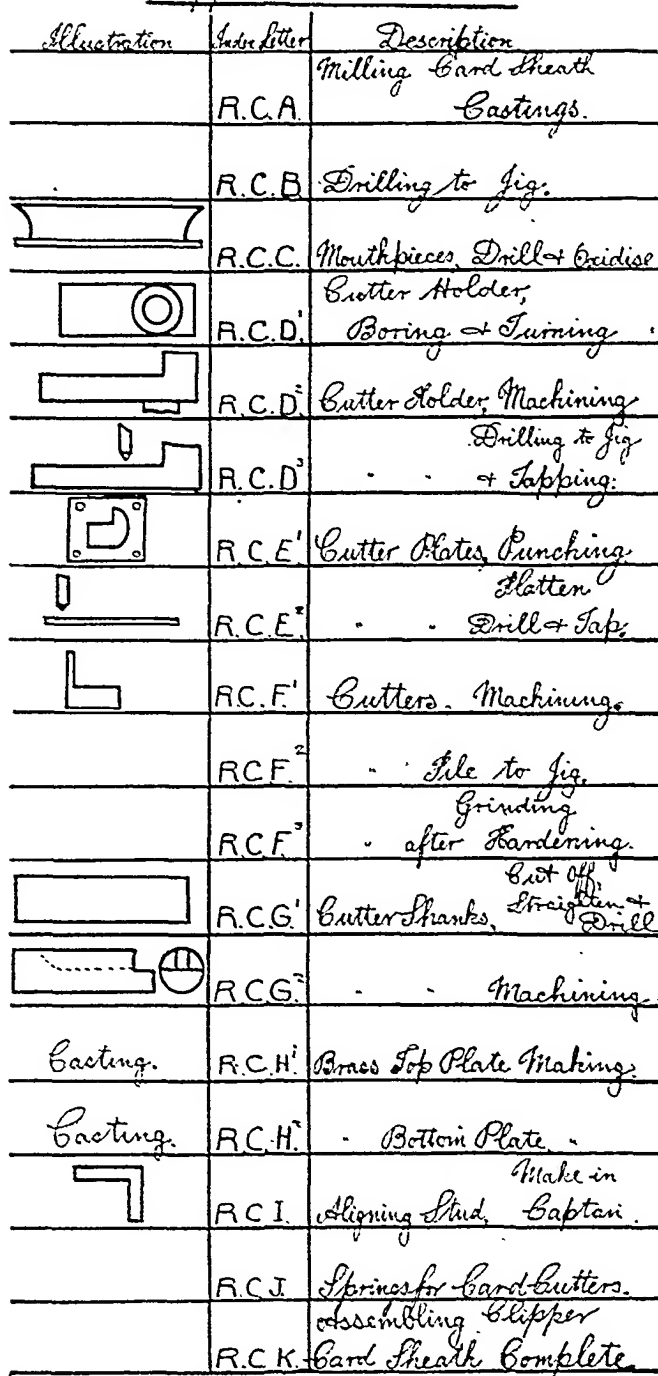 Illustration Index Letter Description
Milling Card Sheath
R.C.A. Castings.
R.C.B. Drilling to Jig.
R.C.C. Mouthpieces, Drill & Oxidise
Cutter Holder,
R.C.D.¹ Boring & Turning
R.C.D.² Cutter Holder, Machining
Drilling to Jig
R.C.D³ " " & Tapping.
R.C.E.¹ Cutter Plates, Punching.
Flatten
R.C.E.² " " Drill & Tap.
R.C.F.¹ Cutters. Machining.
R.C.F.² " File to Jig.
Grinding
R.C.F.³ " after Hardening.
Cut off,
R.C.G.¹ Cutter Shanks, Straighten &
Drill
R.C.G.² " " Machining.
Casting. R.C.H.¹ Brass Top Plate Making.
Casting. R.C.H.² " Bottom Plate "
Make in
R.C.I. Aligning Stud, Captan.
R.C.J. Springs for Card Cutters.
Assembling Clipper
R.C.K. Card Sheath Complete.